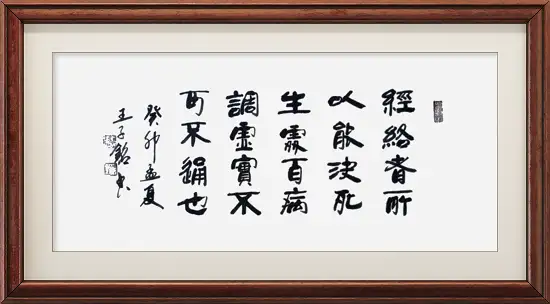 經絡者所
以能決死
生處百病
調虛實不
可不通也
癸卯孟夏
王子銘书